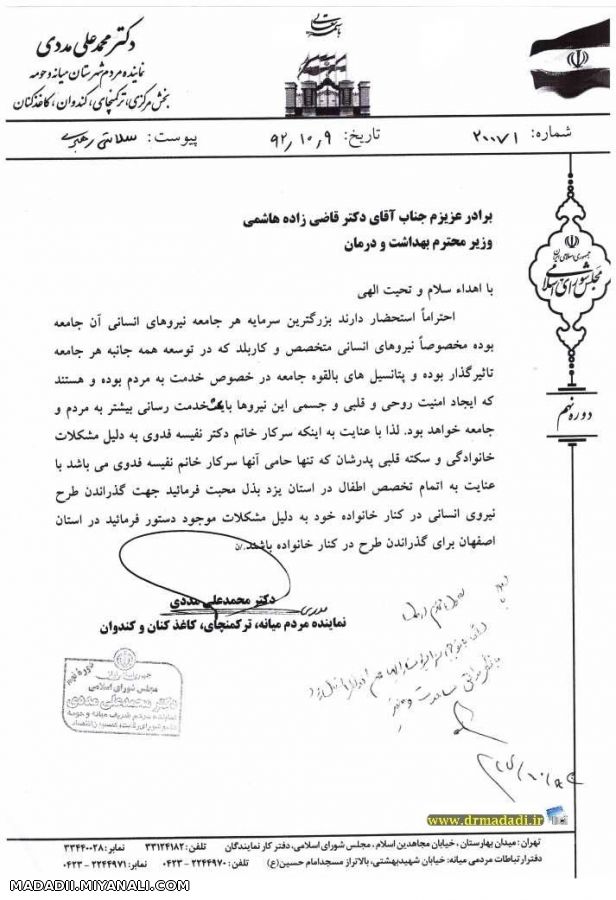 دکتر محمدعلی مددی
نماینده مردم شهرستان میانه و حومه
بخش مرکزی، ترکمنچای، کندوان، کاغذکنان
شماره: ۲۰۰۷۱
تاریخ: ۹۲٫۱۰٫۹
پیوست: سلامتی رهبری
جمهوری اسلامی ایران
مجلس شورای اسلامی
دوره نهم
برادر عزیزم جناب آقای دکتر قاضی زاده هاشمی
وزیر محترم بهداشت و درمان
با اهداء سلام و تحیت الهی
احتراماً استحضار دارند بزرگترین سرمایه هر جامعه نیروهای انسانی آن جامعه
بوده مخصوصاً نیروهای انسانی متخصص و کاربلد که در توسعه همه جانبه هر جامعه
تاثیرگذار بوده و پتانسیل های بالقوه جامعه در خصوص خدمت به مردم بوده و هستند
که ایجاد امنیت روحی و قلبی و جسمی این نیروها باعث خدمت رسانی بیشتر به مردم و
جامعه خواهد بود. لذا با عنایت به اینکه سرکار خانم دکتر نفیسه فدوی به دلیل مشکلات
خانوادگی و سکته قلبی پدرشان که تنها حامی آنها سرکار خانم نفیسه فدوی می باشد با
عنایت به اتمام تخصص اطفال در استان یزد بذل محبت فرمائید جهت گذراندن طرح
نیروی انسانی در کنار خانواده خود به دلیل مشکلات موجود دستور فرمائید در استان
اصفهان برای گذراندن طرح در کنار خانواده باشند.
دکتر محمدعلی مددی
نماینده مردم میانه، ترکمنچای، کاغذ کنان و کندوان
دوره نهم
مجلس شورای اسلامی
دکتر محمدعلی مددی
نماینده مردم شریف میانه و حومه
www.drmadadi.ir
تهران: میدان بهارستان، خیابان مجاهدین اسلام، مجلس شورای اسلامی، دفتر کار نمایندگان تلفن: ۳۳۱۲۴۱۸۲ نمابر: ۳۳۴۴۰۰۲۸
دفتر ارتباطات مردمی میانه: خیابان شهیدبهشتی، بالاتراز مسجدامام حسین(ع) تلفن: ۲۲۴۴۹۷۰-۰۴۲۳ نمابر: ۲۲۴۴۹۷۱-۰۴۲۳
MADADII.MIYANALI.COM